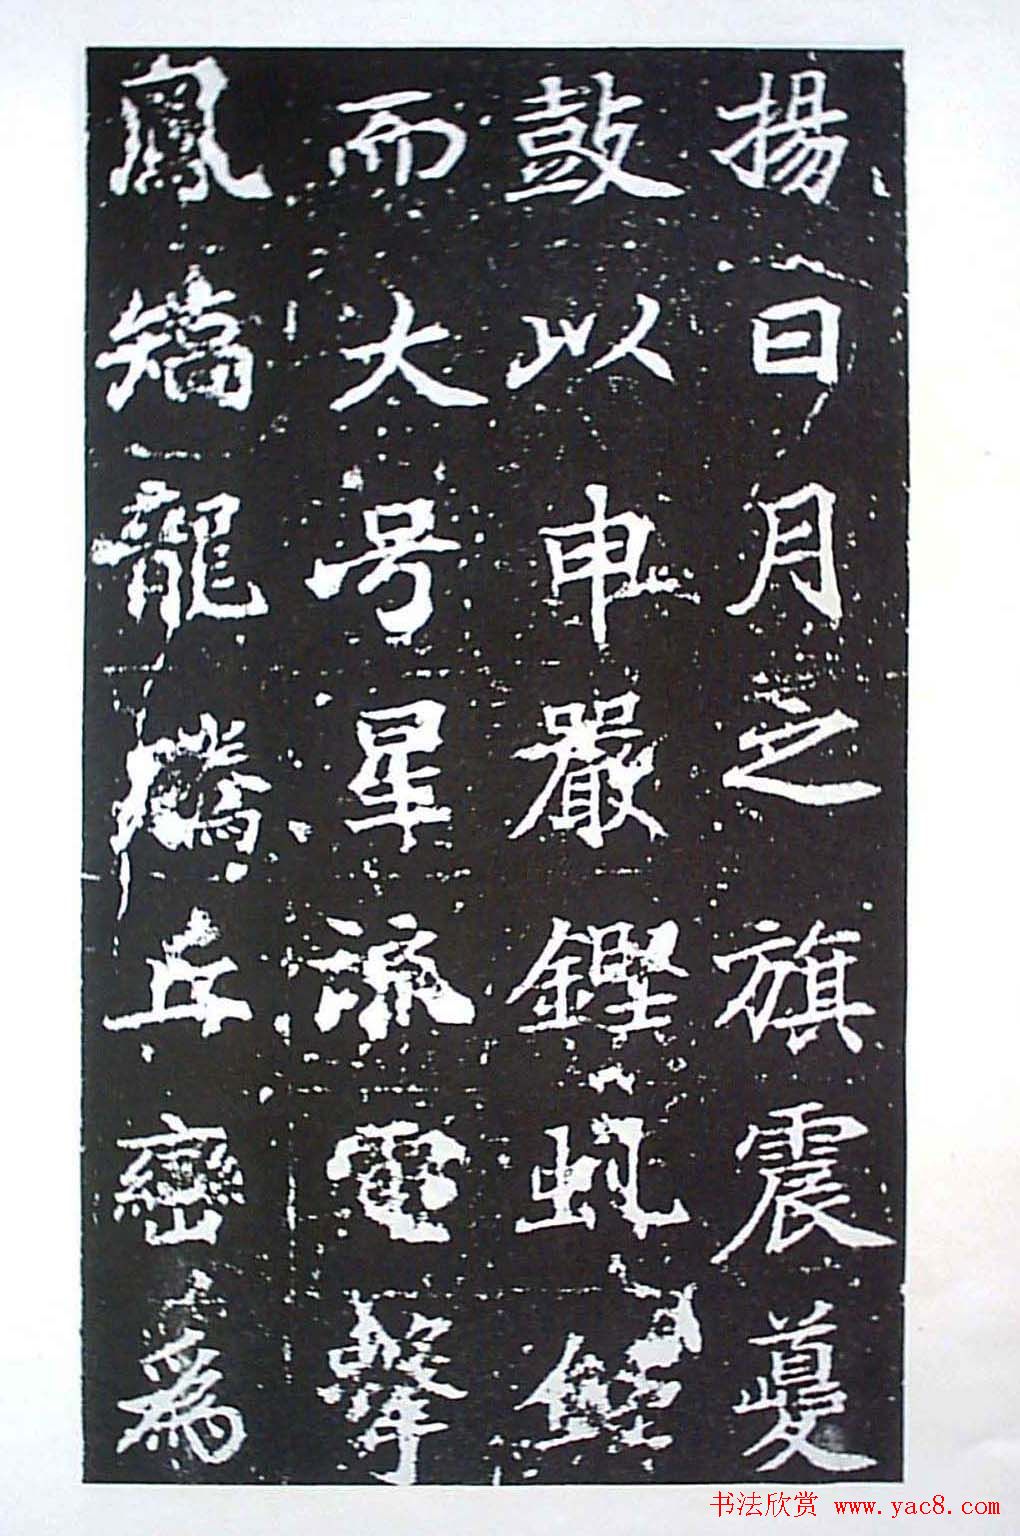 揚日月之旗震夔
鼓以申嚴鏗虬鍾
而大号星流電擊
鳳矯龍騰丘巒為
书法欣赏 www.yac8.com